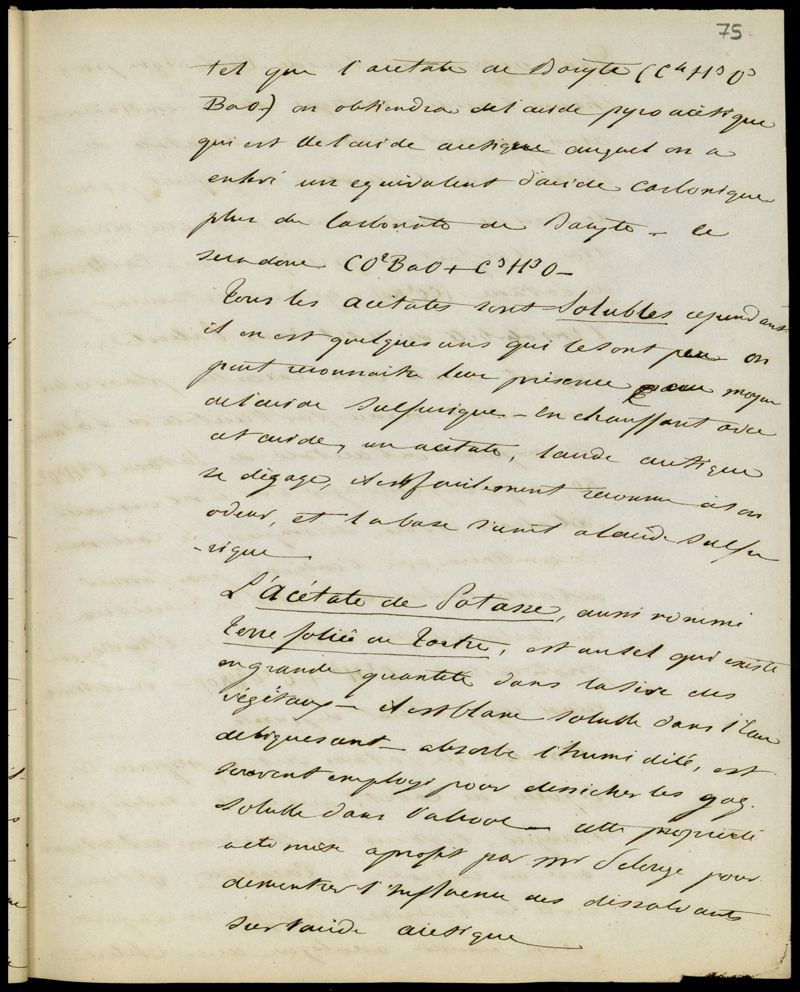 75
tel que l'acétate de Baryte (C4 H3 O3
BaO) on obtiendra de l'acide pyroacétique
qui est de l'acide acétique auquel on a
enlevé un equivalent d'acide carbonique
plus du Carbonate de Baryte - ce
sera donc CO2BaO + C3H3O -
Tous les acétates sont Solubles cependant
il en est quelques uns qui le sont peu on
peut reconnaitre leur présence au moyen
de l'acide Sulfurique - En chauffant avec
cet acide, un acétate, l'acide acétique
se dégage, il est facilement reconnu à son
odeur, et la base s'unit a l'acide Sulfu
-rique
L'Acétate de Potasse, aussi nommé
Terre foliée de Tartre, est un sel qui existe
en grande quantité dans la sève des
végétaux - il est blanc soluble dans l'Eau
deliquescent - absorbe l'humidité, est
souvent employé pour dessécher les gaz.
Soluble dans l'alcool - cette propriété
a été mise a profit par Mr Pelouze pour
demontrer l'influence des dissolvants
sur l'acide acétique